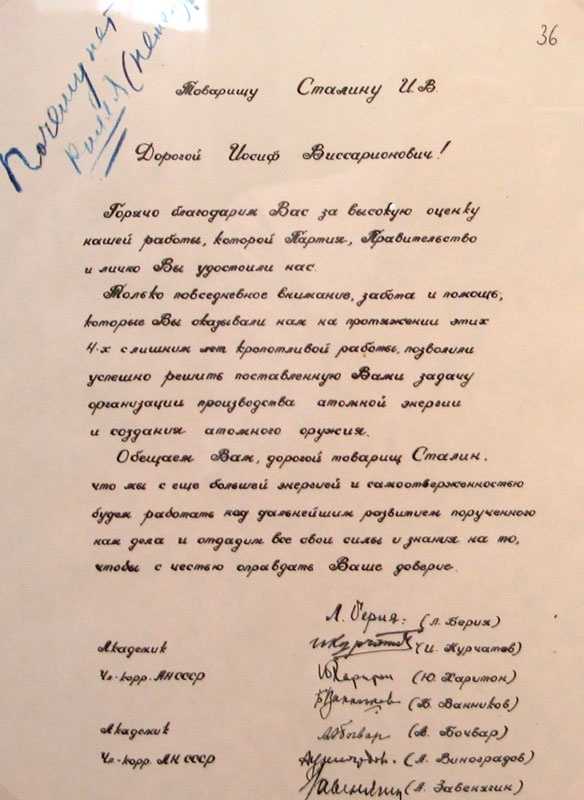 36
Почему нет
Риля (немец
Товарищу Сталину И.В.
Дорогой Иосиф Виссарионович!
Горячо благодарим Вас за высокую оценку
нашей работы, которой Партия, Правительство
и лично Вы удостоили нас.
Только повседневное внимание, забота и помощь,
которые Вы оказывали нам на протяжении этих
4-х слишним лет кропотливой работы, позволили
успешно решить поставленную Вами задачу
организации производства атомной энергии
и создания атомного оружия.
Обещаем Вам, дорогой товарищ Сталин,
что мы с еще большей энергией и самоотверженностью
будем работать над дальнейшим развитием порученного
нам дела и отдадим все свои силы и знания на то,
чтобы с честью оправдать Ваше доверие.
Л. Берия. (Л. Берия)
Академик ИКурчатов (И. Курчатов)
Чл.-корр. АН СССР ЮХаритон (Ю. Харитон)
БВанников (Б. Ванников)
Академик АБочвар (А. Бочвар)
Чл.-корр. АН СССР АВиноградов. (А. Виноградов)
Завенягин (А. Завенягин)